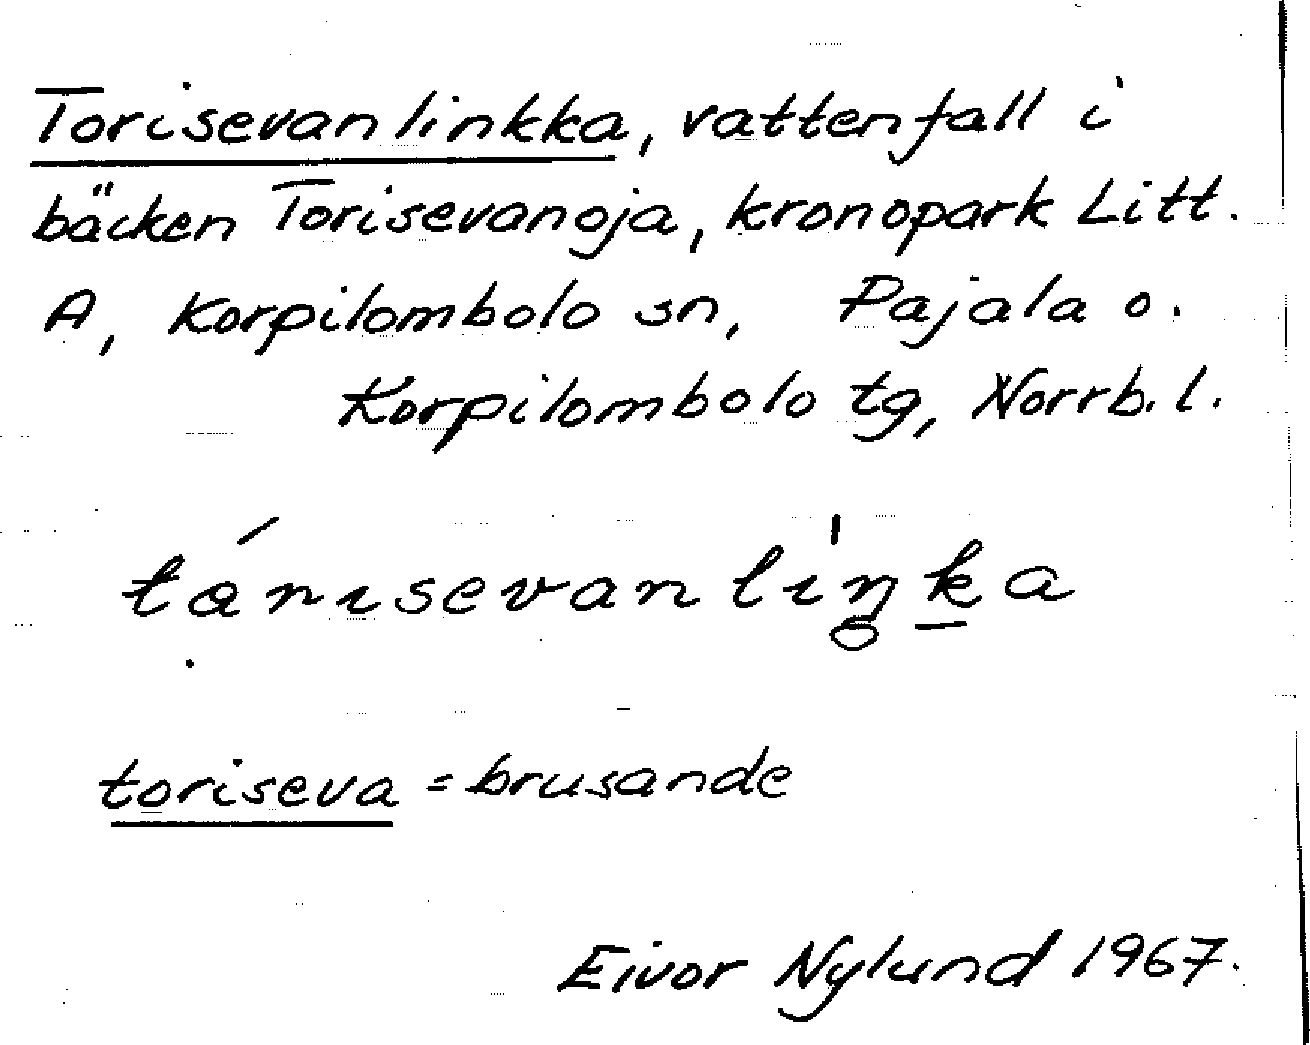 Torisevanlinkka, vattenfall i
bäcken Torisevanoja, kronopark Litt.
A, Korpilombolo sn, Pajala o.
Korpilombolo tg, Norrb. l.
tórısevanlìŋ̥ḵa
toriseva = brusande
Eivor Nylund 1967.